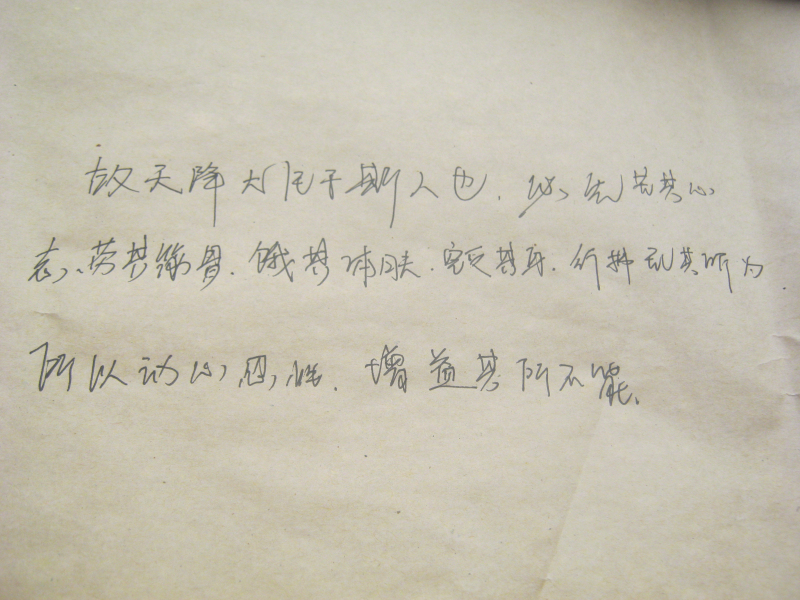 故天降大任于斯人也.必先苦其心
志、劳其筋骨.饿其体肤.空乏其身.行拂乱其所为
所以动心忍性.增益其所不能.